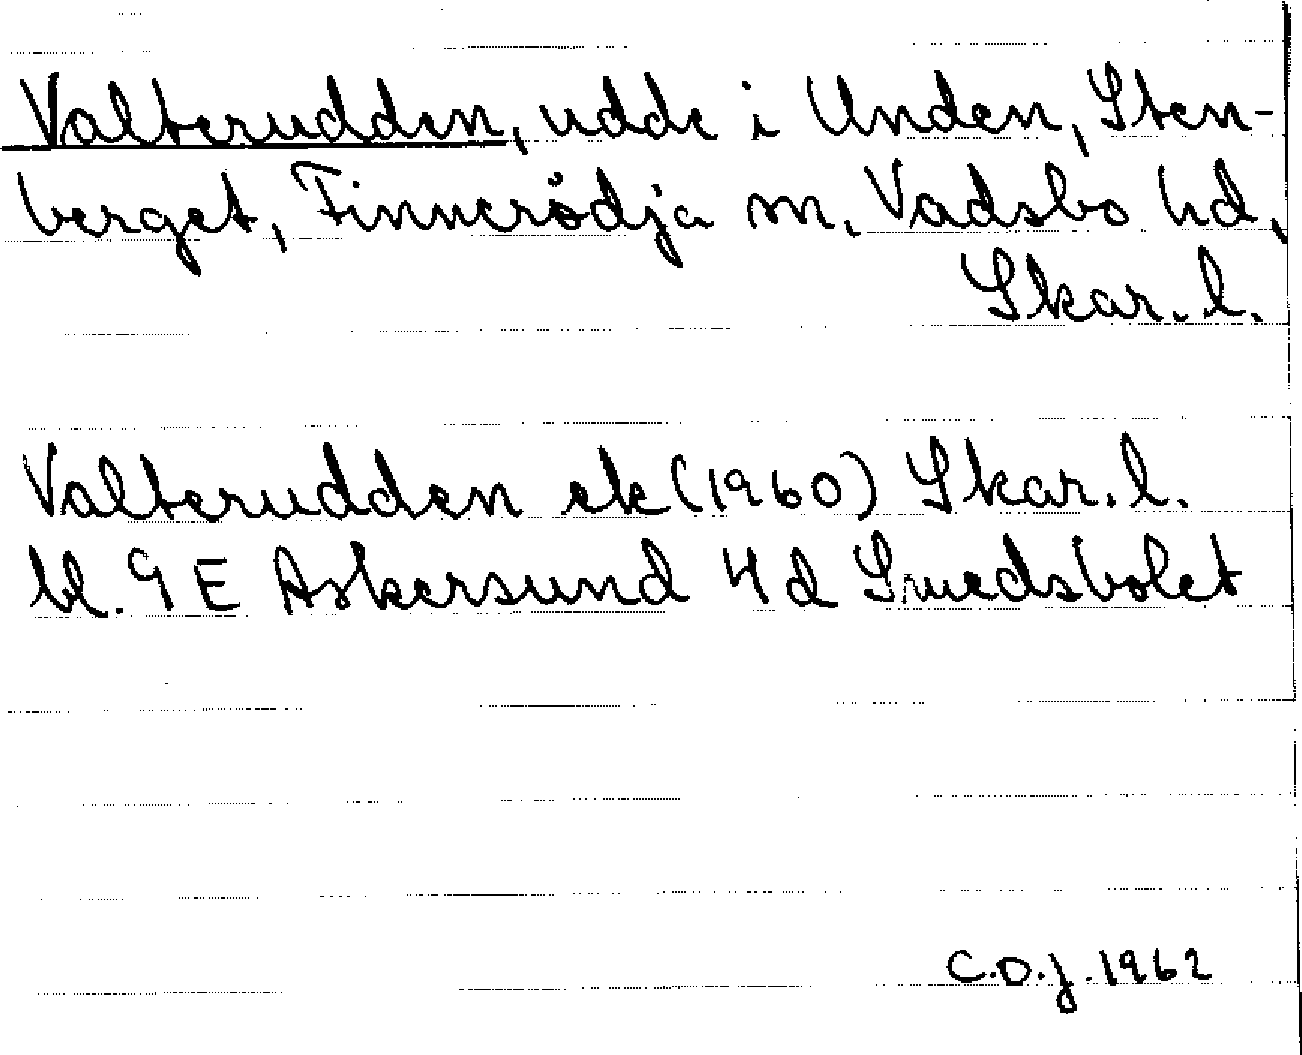 Valterudden, udde i Unden, Sten-
berget, Finnerödja sn. Vadsbo hd,
Skar. l.
Valterudden ek (1960) Skar. l.
bl. 9 E Askersund 4 d Smedsbolet
C.O.J. 1962